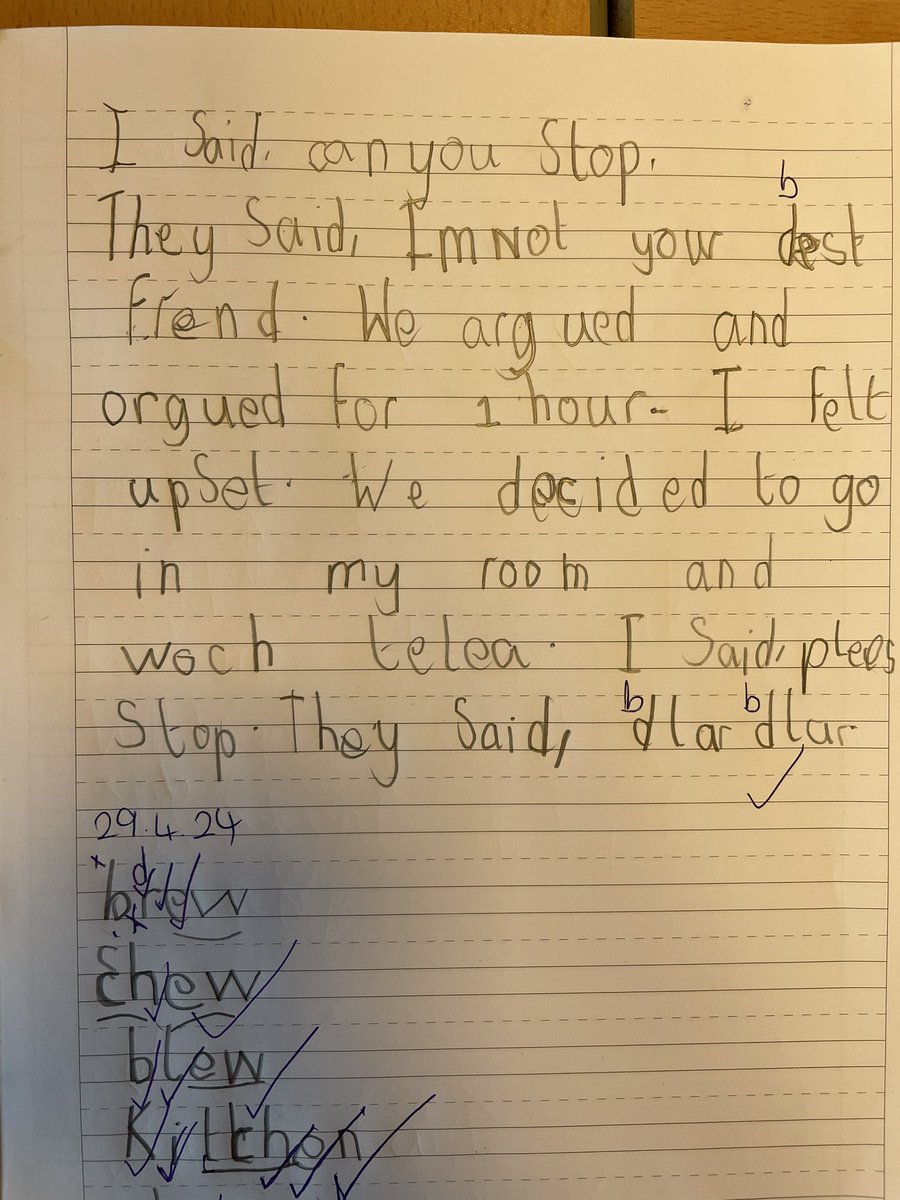 I Said, can you Stop.
b
They Said, I'm Not your dest
friend. We argued and
orgued for 1 hour. I felt
upSet. We decided to go
in my room and
woch telea. I Said, plees
b b
Stop. They Said, dlar dlar.
29.4.24
d
brow
chew
blew
Kitchen